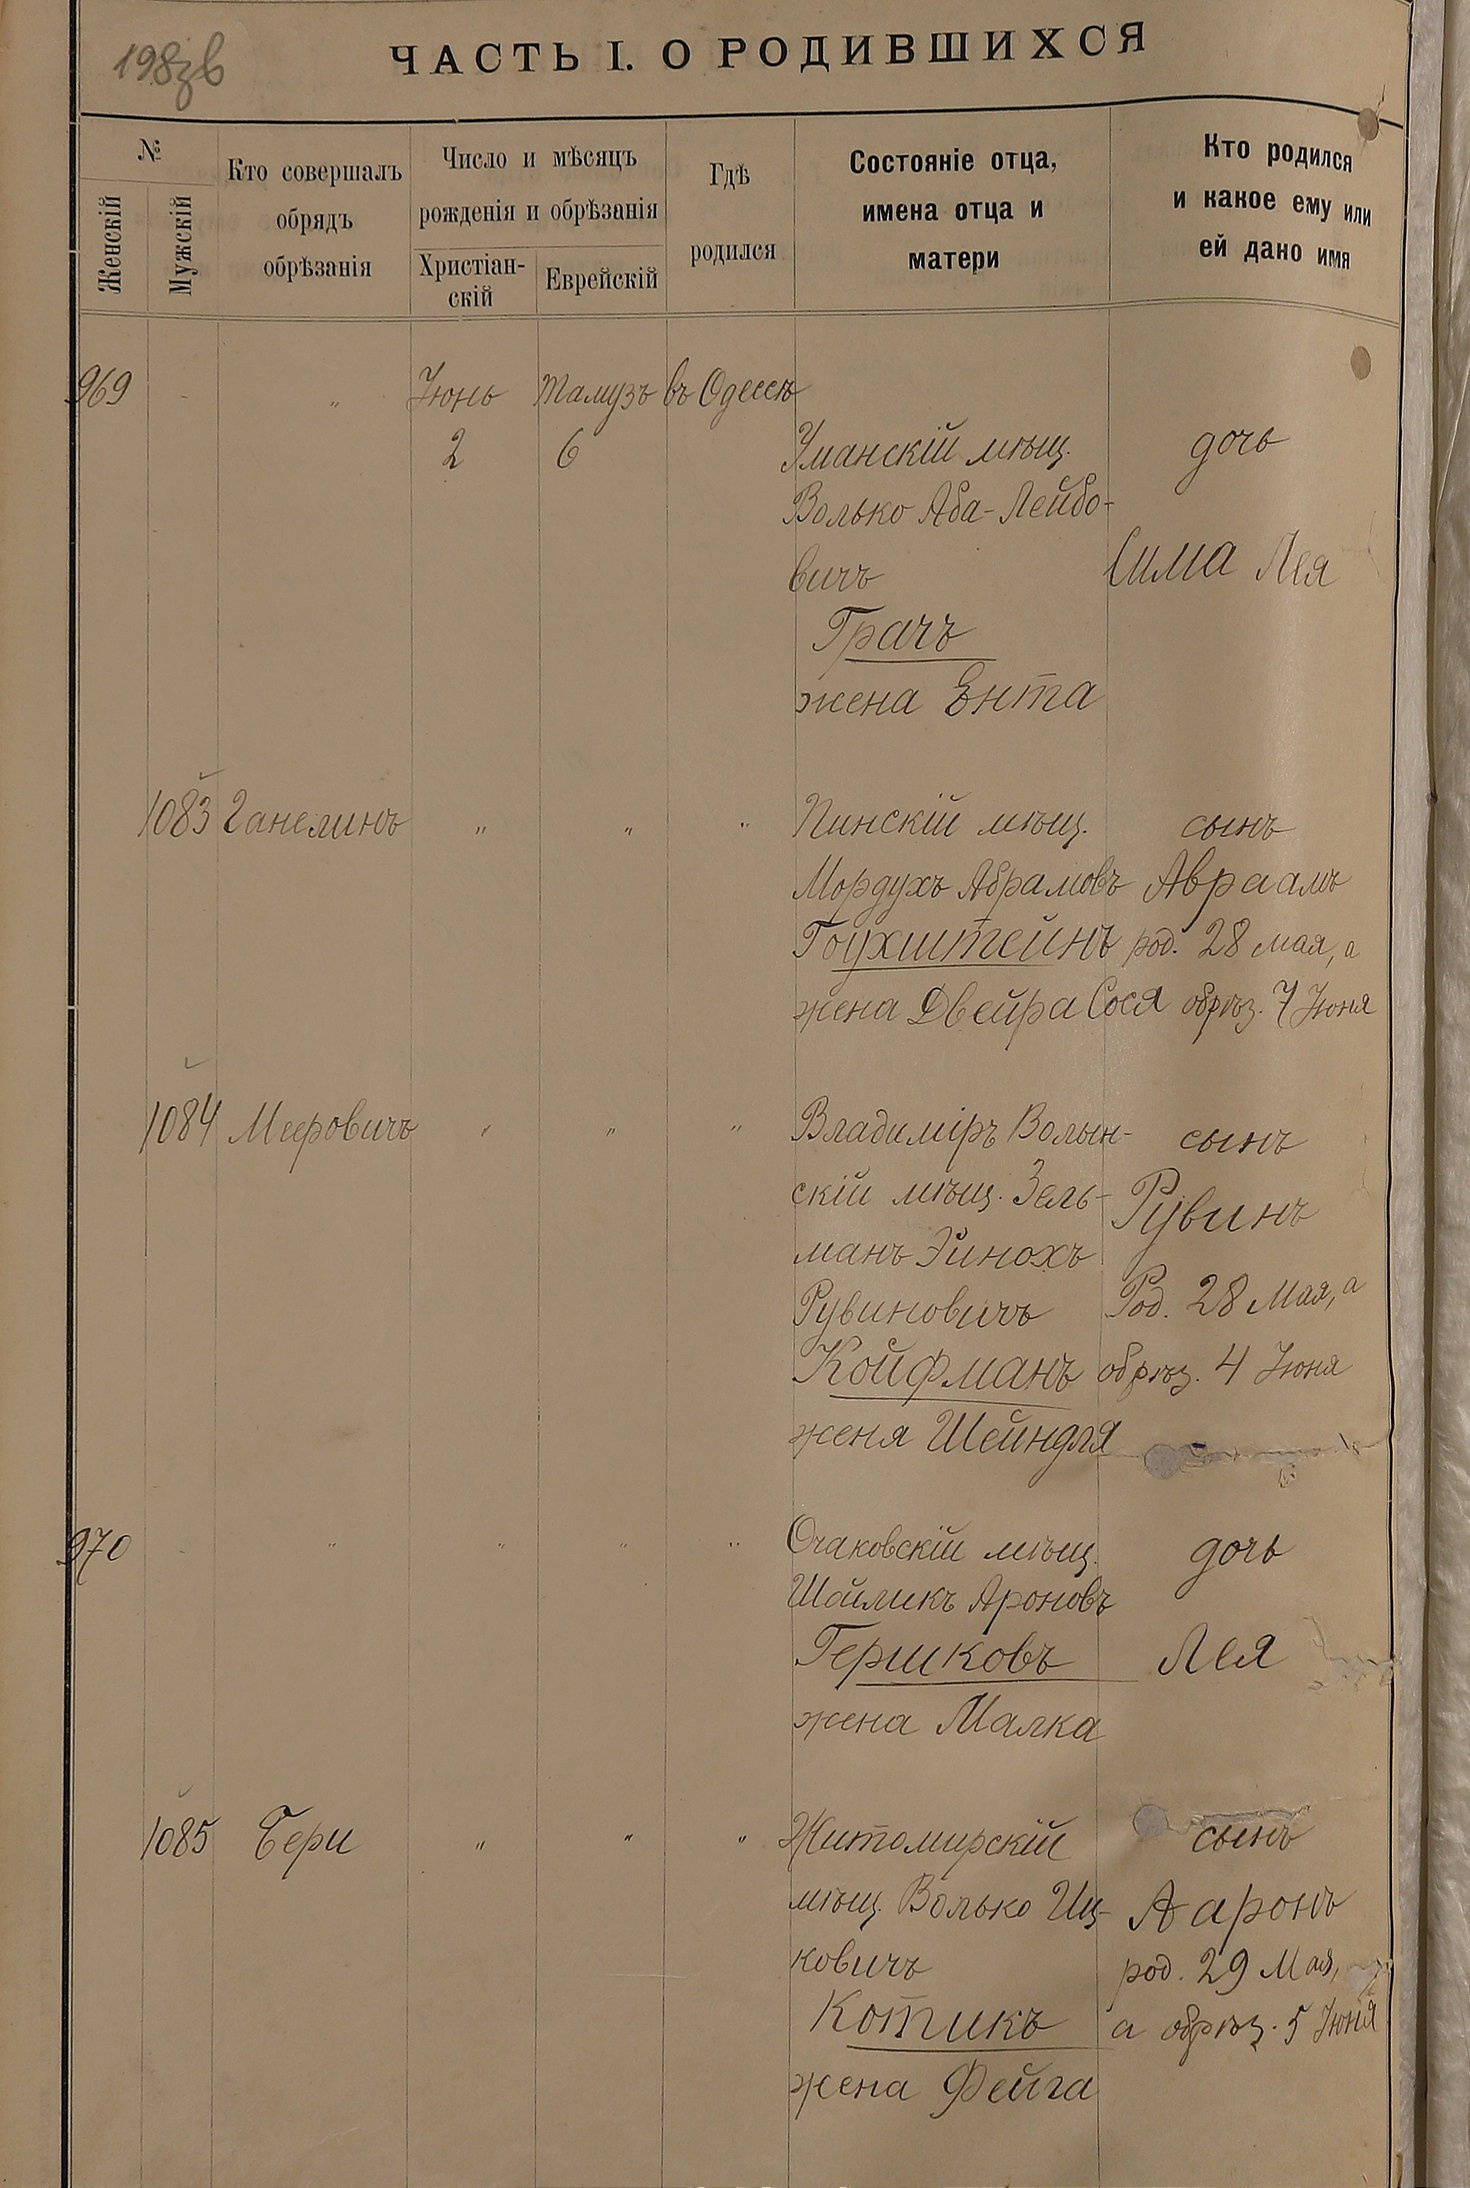 198 зв
ЧАСТЬ I. О РОДИВШИХСЯ
№
Женскій
Мужскій
Кто совершалъ
обрядъ
обрѣзанія
Число и мѣсяцъ
рожденія и обрѣзанія
Христіан-
скій
Еврейскій
Гдѣ
родился
Состояніе отца,
имена отца и
матери
Кто родился
и какое ему или
ей дано имя
969 - " Іюнь Тамузъ въ Одессѣ
2 6 Уманскій мѣщ. дочь
Волько Аба-Лейбо-
вичъ Сима Лея
Грачъ
жена Ента
1083 Ганелинъ " " " Пинскій мѣщ. сынъ
Мордухъ Абрамовъ Авраамъ
Гоухштейнъ род. 28 мая, а
жена Двейра Сося обрѣз. 7 Іюня
1084 Мееровичъ " " " Владиміръ Волын- сынъ
скій мѣщ. Зель- Рувинъ
манъ Эйнохъ
Рувиновичъ Род. 28 Мая, а
Койфманъ обрѣз. 4 Іюня
женя Шейндля
970 - " " " " Очаковскій мѣщ. дочь
Шойликъ Ароновъ
Гершковъ Лея
жена Малка
1085 Бери " " " Житомирскій сынъ
мѣщ. Волько Иц- Ааронъ
ковичъ род. 29 Мая,
Котикъ а обрѣз. 5 Іюня
жена Фейга